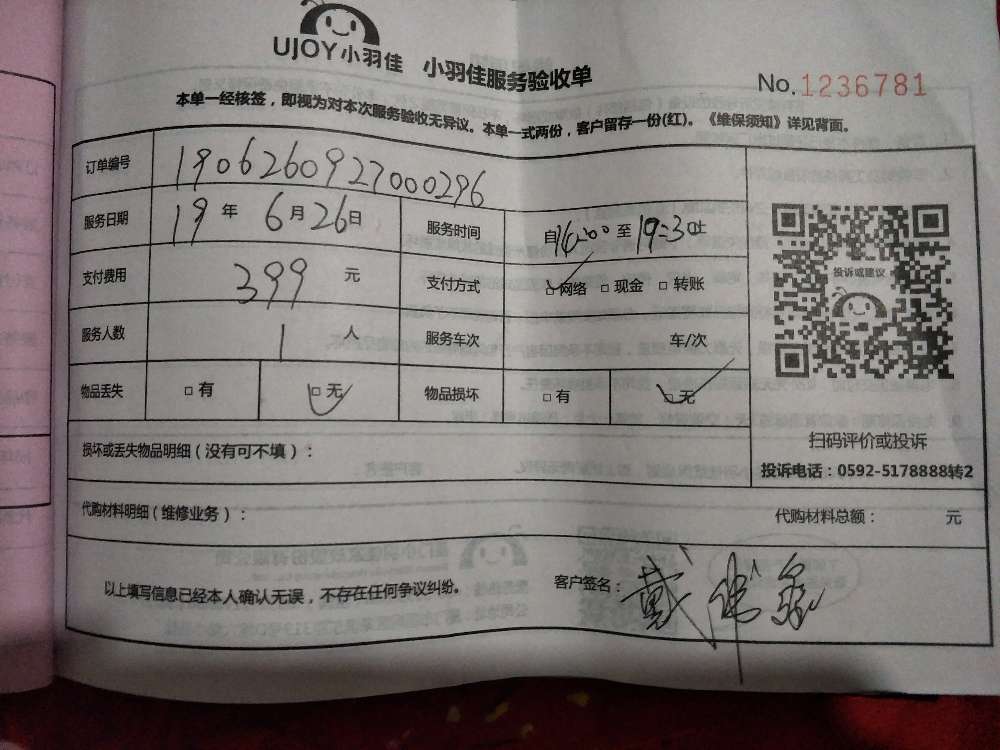 UJOY小羽佳 小羽佳服务验收单
No.1236781
本单一经核签，即视为对本次服务验收无异议。本单一式两份，客户留存一份(红)。《维保须知》详见背面。
订单编号 1906260927000296
服务日期 19 年 6 月 26 日 服务时间 自16:00 至 19:30止
支付费用 399 元 支付方式 □网络 □ 现金 □ 转账
服务人数 1 人 服务车次 车/次
物品丢失 □ 有 □ 无 物品损坏 □ 有 □ 无
投诉或建议
扫码评价或投诉
投诉电话：0592-5178888转2
损坏或丢失物品明细（没有可不填）：
代购材料明细（维修业务）： 代购材料总额： 元
以上填写信息已经本人确认无误，不存在任何争议纠纷。 客户签名：戴